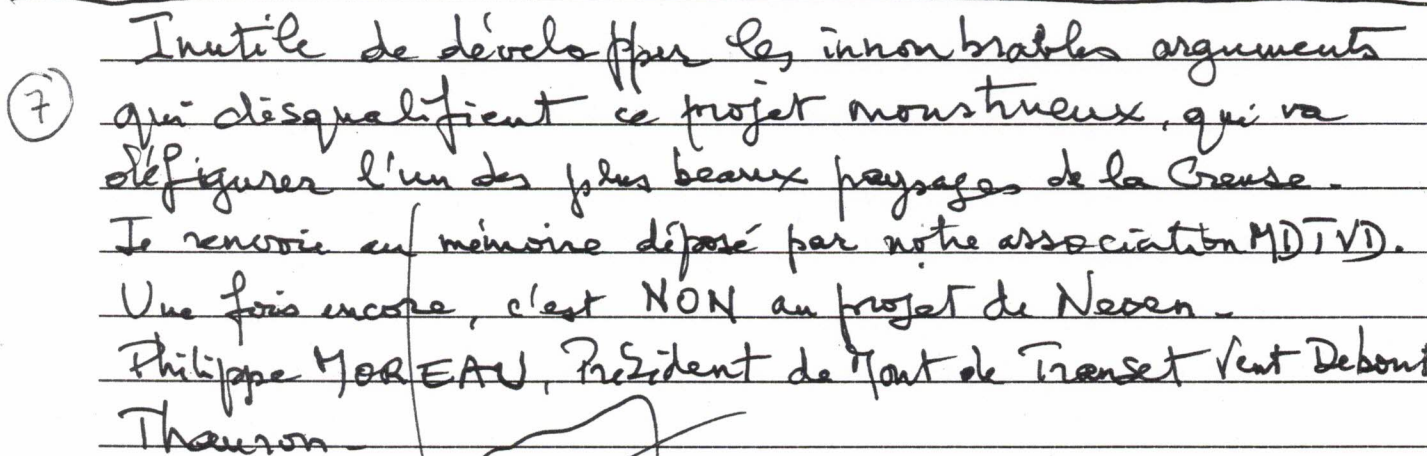 Inutile de développer les innombrables arguments
⑦ qui disqualifient ce projet monstrueux, qui va
défigurer l'un des plus beaux paysages de la Creuse.
Je renvoie au mémoire déposé par notre association MDTVD.
Une fois encore, c'est NON au projet de Neoen.
Philippe MOREAU, Président de Mont de Transet Vent Debout
Thauron.